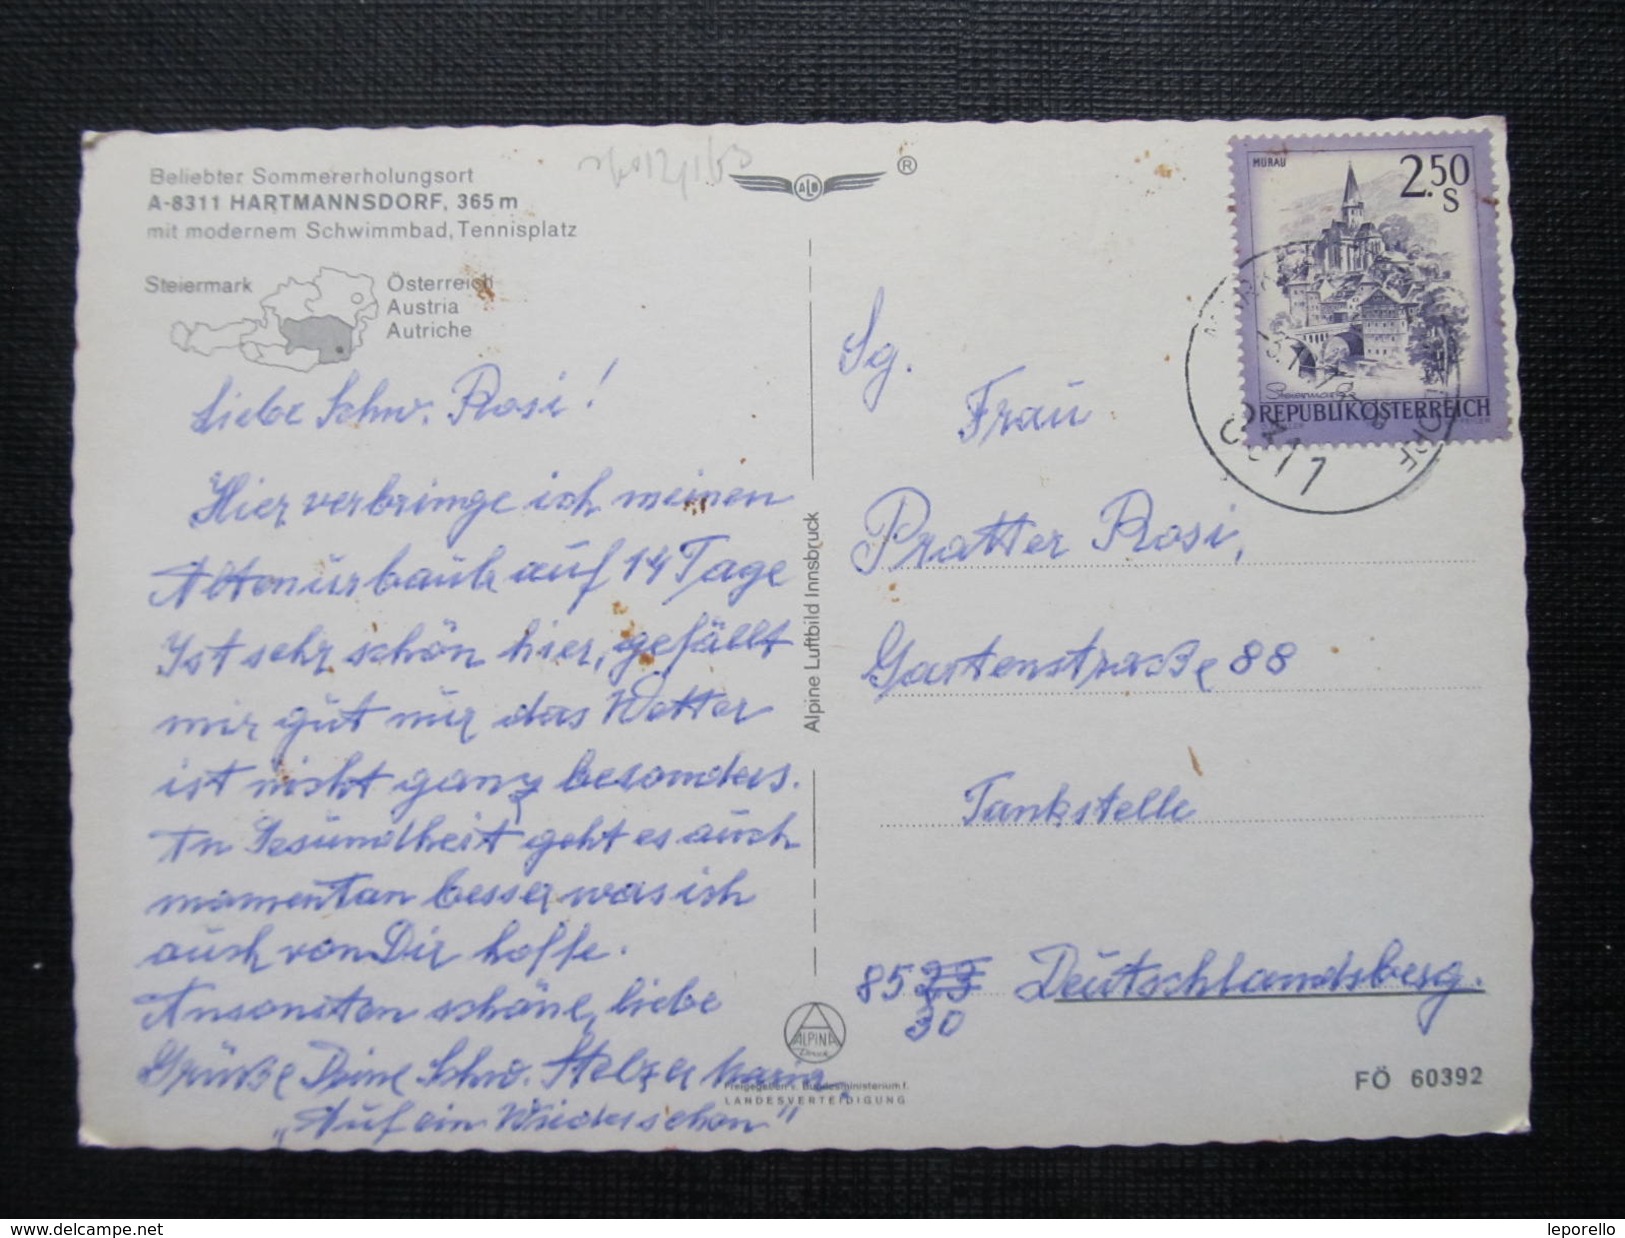 Beliebter Sommererholungsort
A-8311 HARTMANNSDORF, 365 m
mit modernem Schwimmbad, Tennisplatz
Steiermark
Österreich
Austria
Autriche
ALM
®
Liebe Schw. Rosi!
Hier verbringe ich meinen
auf 14 Tage
Ist sehr schön hier, gefällt
mir gut nur das Wetter
ist nicht ganz besonders.
In Gesundheit geht es auch
momentan besser was ich
auch von Dir hoffe.
Ansonsten schöne, liebe
Grüße Deine Schw. Stelzer Maria
"Auf ein Wiedersehen"
Alpine Luftbild Innsbruck
ALPINA
Druck
Freigegeben v. Bundesministerium f.
LANDESVERTEIDIGUNG
MURAU
2.50
S
Steiermark
REPUBLIK ÖSTERREICH
8311
Sg.
Frau
Pratter Rosi,
Gartenstraße 88
Tankstelle
85
30
Deutschlandsberg.
FÖ 60392
www.delcampe.net
leporello